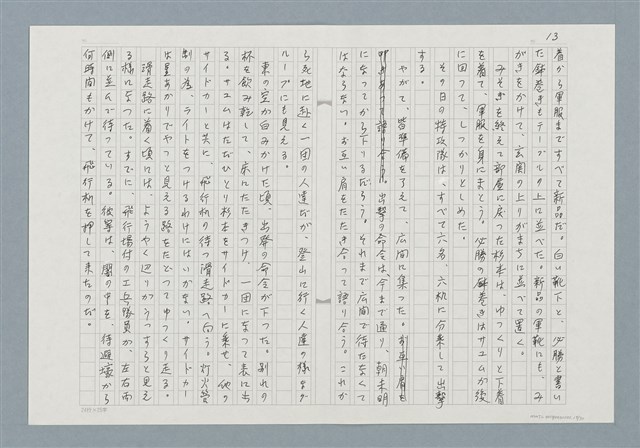 13
着から軍服まですべて新品だ。白い靴下と、必勝と書い
た鉢巻きもテーブルの上に並べた。新品の軍靴にも、み
がきをかけて、玄関の上りがまちに並べて置く。
みそぎを終えて部屋に戻った杉本は、ゆっくりと下着
を着て、軍服を身にまとう。必勝の鉢巻きはサユムが後
に回って、しっかりとしめた。
その日の特攻隊は、すべて六名、六机に分乗して出撃
する。
やがて、皆準備を了えて、広間に集った。
出撃の命令は、今まで通り、朝未明
になってから下りるだろう。それまで広間で待たなくて
はならない。お互い肩をたたき合って語り合う。これか
ら死地に赴く一団の人達だが、登山に行く人達の様なグ
ループにも見える。
東の空が白みかけた頃、出発の命令が下った。別れの
杯を飲み乾して、床にたたきつけ、一団になって表に出
る。サユムはただひとり杉本をサイドカーに乗せ、他の
サイドカーと共に、飛行机の待つ滑走路へ向う。灯火管
制の為、ライトをつけるわけにはいかない。サイドカー
は星あかりでやっと見える路をたどってゆっくり走る。
滑走路に着く頃には、ようやく辺りがうっすらと見え
る様になった。すでに、飛行場付の工兵隊員が、左右両
側に並んで待っている。彼等は、闇の中を、待避壕から
何時間もかけて、飛行机を押して来たのだ。